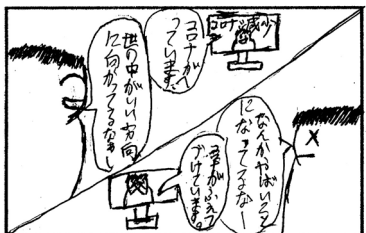 コロナ減少
コロナがへ
っています。
世の中がいい方向
に向かってるなぁー
なんかやばいこと
になってるなー
がふえつ
づけています。